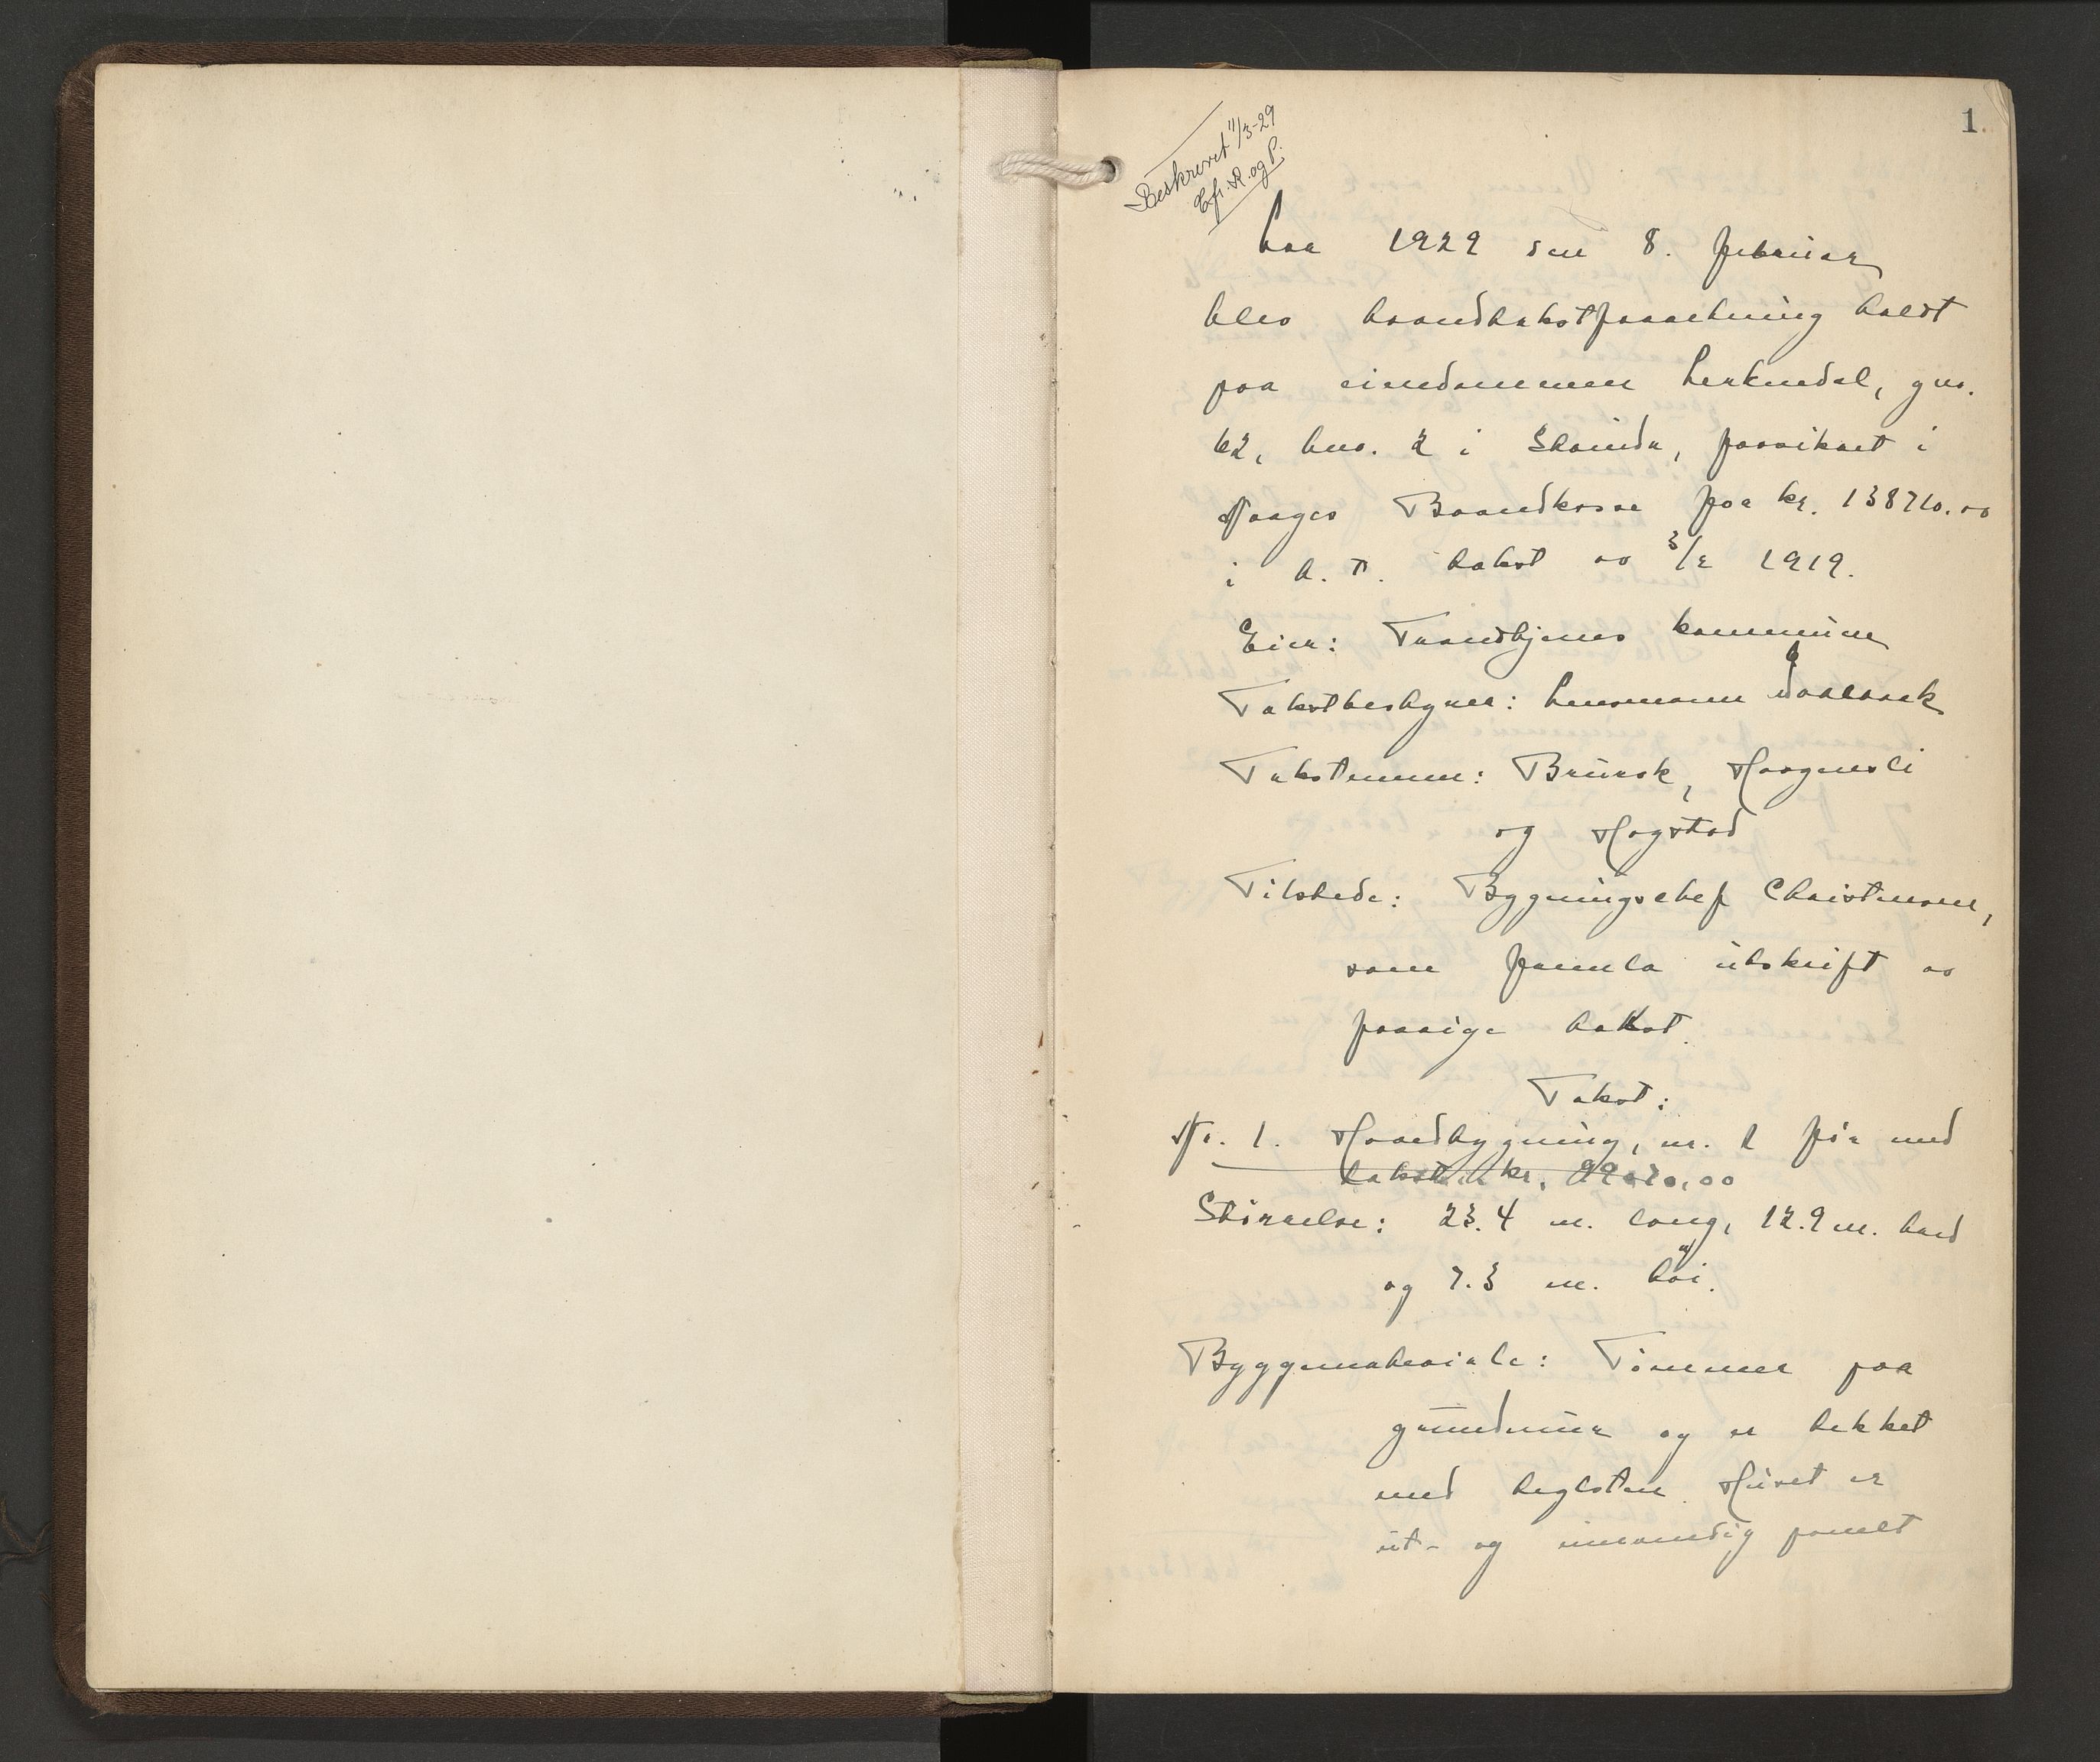 1.
Beskrevet 11/3-29
Eft. R. og P.
Aar 1929 den 8. februar
blev brandtakstforretning holdt
paa eiendommen Lerkendal, gnr.
62, bnr. 2 i Strinda, forsikret i
Norges Brandkasse for kr. 138710.00
i h. t. takst av 3/2 1919.
Eier: Trondhjems kommune
Takstbestyrer: Lensmann
Takstmenn: Brurok, Haagensli
og Hogstad
Tilstede: Bygningschef Christensen,
som fremla utskrift av
forrige takst.
Takst:
Nr. 1. Hovedbygning, nr. 1 før med
takst kr. 99070,00
Størrelse: 23.4 m. lang, 12.9 m. bred
og 7.3 m. høi.
Byggemateriale: Tømmer paa
grundmur og er tekket
med teglsten. Huset er
ut- og innvendig panelt